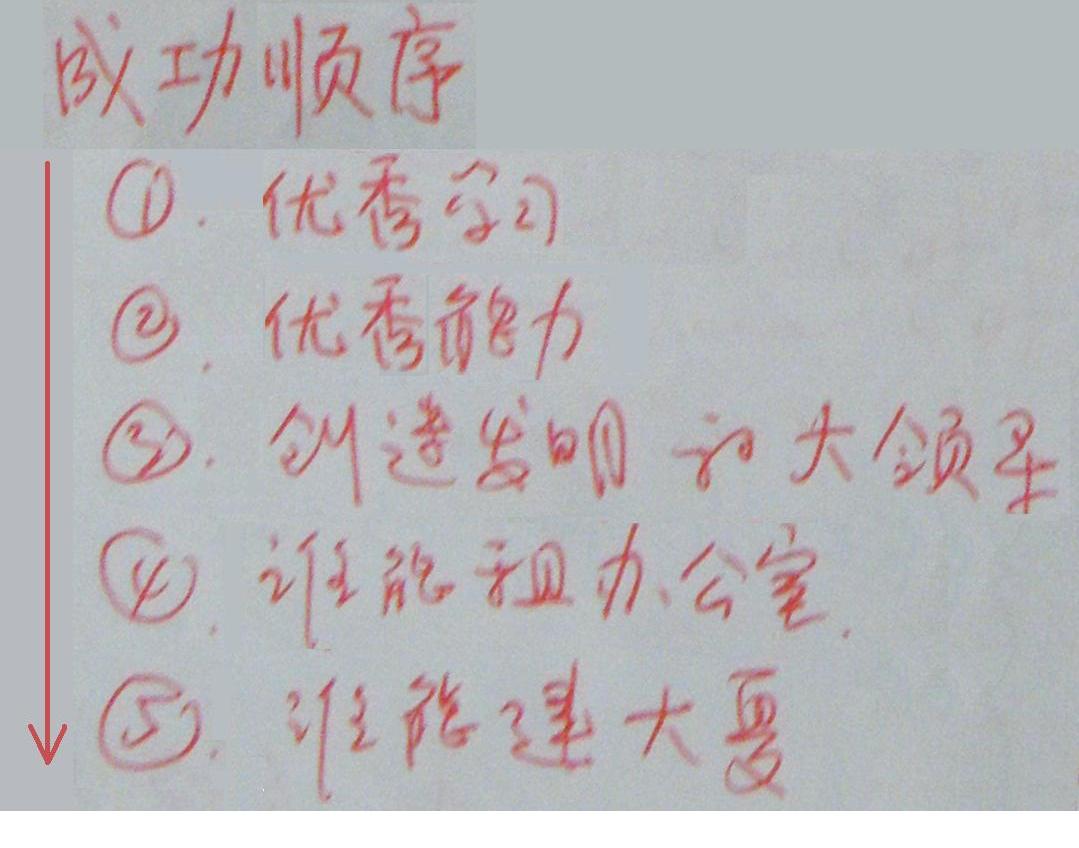 成功顺序
①. 优秀学习
②. 优秀能力
③. 创造发明和大领导
④. 谁能租办公室.
⑤. 谁能建大夏